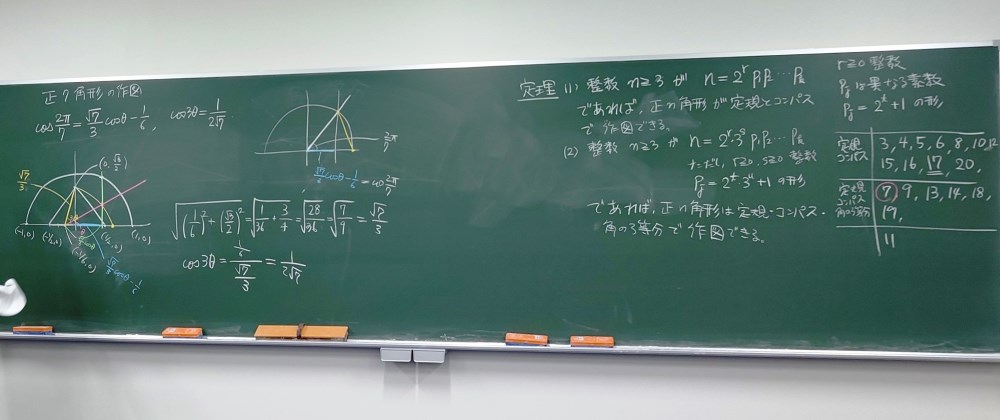 正7角形の作図
cos 2π/7 = √7/3 cosθ - 1/6, cos3θ = 1/(2√7)
(0, √3/2)
√7/3
(-1,0) (-1/2,0) (1/2,0) (1,0)
(-1/6,0)
√7/3 cosθ - 1/6
2π/7
√7/3 cosθ - 1/6 = cos 2π/7
√((1/6)²+(√3/2)²) = √(1/36 + 3/4) = √(28/36) = √(7/9) = √7/3
cos3θ = (1/6)/(√7/3) = 1/(2√7)
定理 (1) 整数 n≥3 が n=2^r p₁p₂…p_k
であれば, 正n角形が定規とコンパス
で作図できる。
(2) 整数 n≥3 が n=2^r·3^s p₁p₂…p_k
ただし, r≥0, s≥0 整数
p_j = 2^t·3^u+1 の形
であれば, 正n角形は定規・コンパス・
角の3等分で作図できる。
r≥0 整数
p_j は異なる素数
p_j = 2^s+1 の形
定規 コンパス 3, 4, 5, 6, 8, 10, 12
15, 16, 17, 20,
定規 コンパス 角の3等分 7, 9, 13, 14, 18,
19,
11